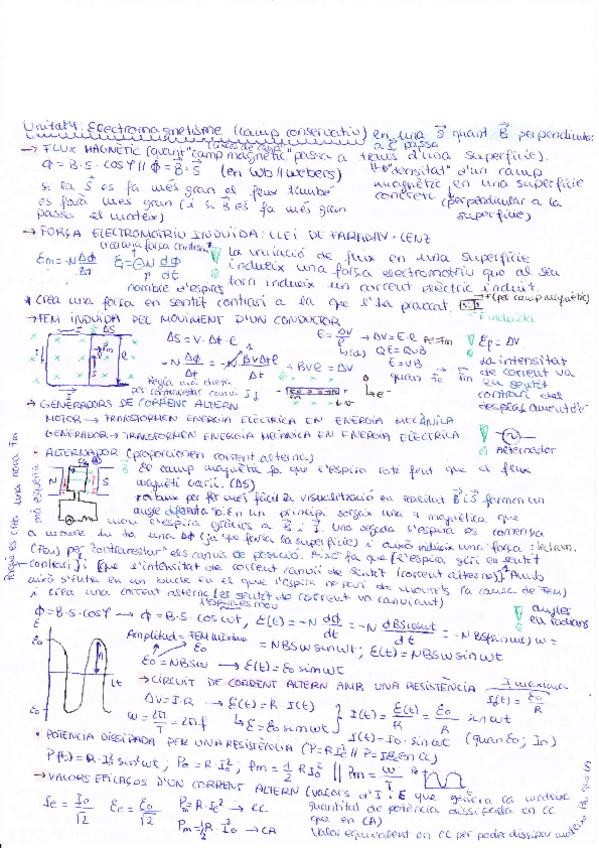 Unitat 4: Electromagnetisme (camp conservatiu)
→ FLUX MAGNÈTIC (quant "camp magnètic" passa a través d'una superfície).
línies de camp
en una S⃗ quant B⃗ perpendicular
a S⃗ passa
Φ = B·S·cosφ // Φ = B⃗·S⃗ (en Wb // webers)
"densitat" d'un camp
magnètic en una superfície
concreta (perpendicular a la
superfície)
si la S⃗ es fa més gran el flux també
es farà més gran (i si B⃗ es fa més gran
passa el mateix)
→ FORÇA ELECTROMOTRIU INDUIDA: LLEI DE FARADAY-LENZ
crea una força contrària
Em = -N ΔΦ/Δt
E = -N dΦ/dt
nombre d'espires
la variació de flux en una superfície
indueix una força electromotriu que al seu
torn indueix un corrent elèctric induït.
* Crea una força en sentit contrari a la que l'ha provocat.
F (pel camp magnètic)
F induida
→ FEM INDUIDA PEL MOVIMENT D'UN CONDUCTOR
ΔS
ΔS = v·Δt·l
Regla mà dreta
per contrarestar canvi
E = ΔV/l → ΔV = E·l
QE = QvB
E = vB
Fe = Fm
= BvΔ
quan Fe = Fm
E = ΔV
La intensitat
de corrent va
en sentit
contrari del
desplaçament d'e⁻
→ GENERADORS DE CORRENT ALTERN
MOTOR → TRANSFORMEN ENERGIA ELÈCTRICA EN ENERGIA MECÀNICA
GENERADOR → TRANSFORMEN ENERGIA MECÀNICA EN ENERGIA ELÈCTRICA
Alternador
• ALTERNADOR (proporcionen corrent altern)
N S
El camp magnètic fa que l'espira roti fent que el flux
magnètic variï. (ΔS)
per fer més fàcil la visualització en realitat B⃗ i S⃗ formen un
angle diferent a 90. En un principi sorgeix una F magnètica que
mou l'espira gràcies a B⃗ i I⃗. Una vegada l'espira es comença
a moure hi ha una ΔΦ (ja que varia la superfície) i això indueix una força electrom.
(Fem) per "contrarestar" els canvis de posició. Això fa que [l'espira giri en sentit
contrari] i [que l'intensitat de corrent canvii de sentit (corrent altern)]. Amb
això s'entra en un bucle en el que l'espira no para de moure's (a causa de Fem)
i crea una corrent alterna (el sentit de corrent va canviant)
l'espira es mou
Φ = B·S·cosφ → Φ = B·S·cosωt, E(t) = -N dΦ/dt = -N dBScosωt/dt = -NBS(-sinωt)ω =
= NBSω sinωt; E(t) = NBSω sinωt
angles
en radians
Amplitud = FEM màxima
E₀ = NBSω → E(t) = E₀ sinωt
→ CIRCUIT DE CORRENT ALTERN AMB UNA RESISTÈNCIA
I màxima
I₀(t) = E₀/R
ΔV = I·R → E(t) = R·I(t)
I(t) = E(t)/R = E₀/R sinωt
ω = 2π/T = 2πf
E = E₀ sinωt
I(t) = I₀·sinωt (quan E₀; I₀)
• POTENCIA DISSIPADA PER UNA RESISTÈNCIA (P = R·I² // P = IE en CC)
P(t) = R·I₀² sin²ωt, P₀ = R·I₀², Pm = 1/2 R I₀² // Pm = W/T
→ VALORS EFICAÇOS D'UN CORRENT ALTERN (valors d'I i E que genera la mateixa
quantitat de potència dissipada en CC
que en CA)
Ie = I₀/√2 Ee = E₀/√2 P = R·Ie² → CC
Pm = 1/2 R·I₀² → CA
Valor equivalent en CC per poder dissipar